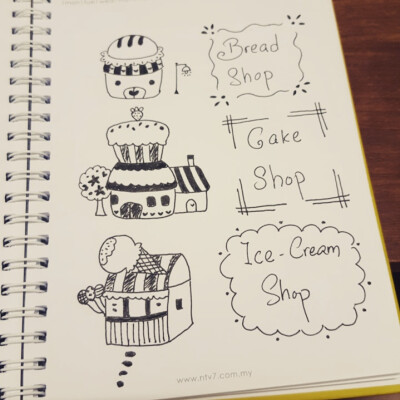 Bread
Shop
Cake
Shop
Ice-Cream
Shop
www.ntv7.com.my